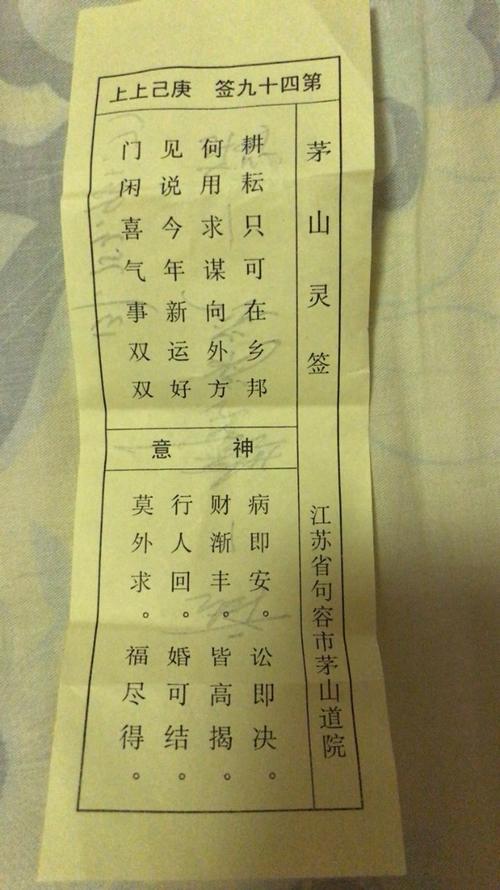 第四十九签 庚己上上
茅山灵签
江苏省句容市茅山道院
耕耘只可在乡邦
何用求谋向外方
见说今年新运好
门闲喜气事双双
神意
病即安。讼即决。
财渐丰。皆高揭。
行人回。婚可结。
莫外求。福尽得。